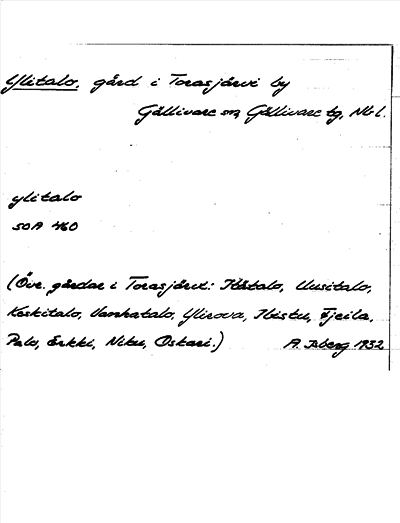 Ylitalo, gård i Torasjärvi by
Gällivare sn, Gällivare tg, Nbl.
ylitalo
SOA 460
(Övr. gårdar i Torasjärvi: Uusitalo,
Keskitalo, Vanhatalo, Ylirova, Fjeila,
Palo, Erkki, Niku, Oskari.) A. Isberg 1932